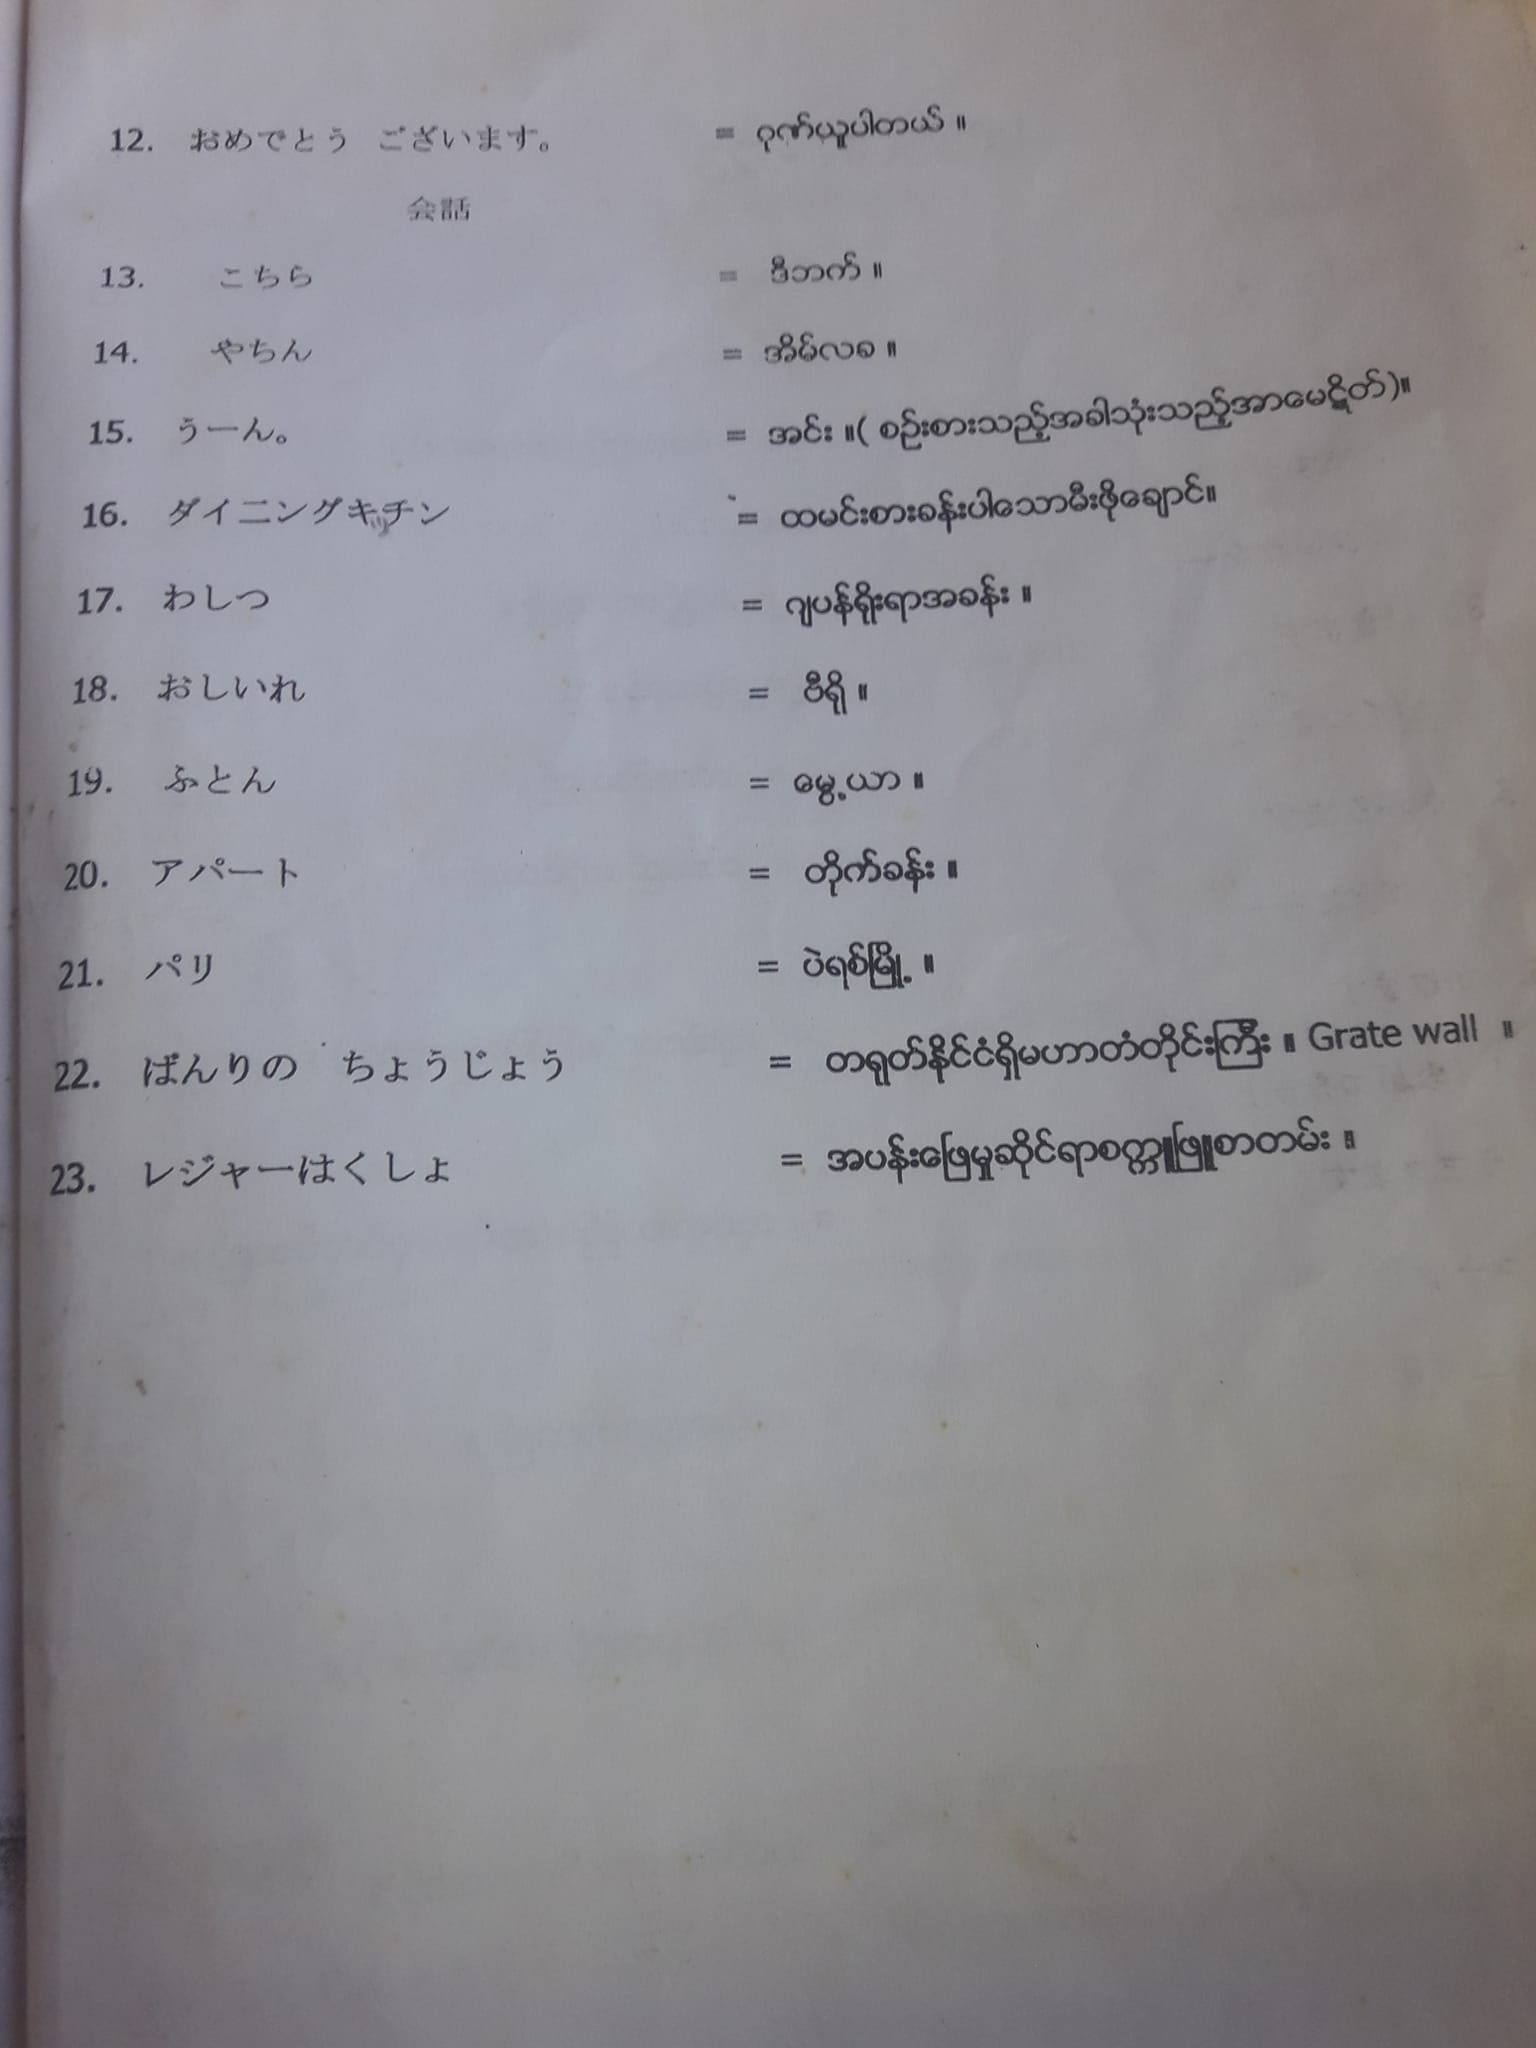 12. おめでとう ございます。 = ဂုဏ်ယူပါတယ် ။
会話
13. こちら = ဒီဘက် ။
14. やちん = အိမ်လခ ။
15. うーん。 = အင်း ။( စဉ်းစားသည့်အခါသုံးသည့်အာမေဋိတ်)။
16. ダイニングキチン = ထမင်းစားခန်းပါသောမီးဖိုချောင်။
17. わしつ = ဂျပန်ရိုးရာအခန်း ။
18. おしいれ = ဗီရို ။
19. ふとん = မွေ့ယာ ။
20. アパート = တိုက်ခန်း ။
21. パリ = ပဲရစ်မြို့ ။
22. ばんりの ちょうじょう = တရုတ်နိုင်ငံရှိမဟာတံတိုင်းကြီး ။ Grate wall ။
23. レジャーはくしょ = အပန်းဖြေမှုဆိုင်ရာစက္ကူဖြူစာတမ်း ။